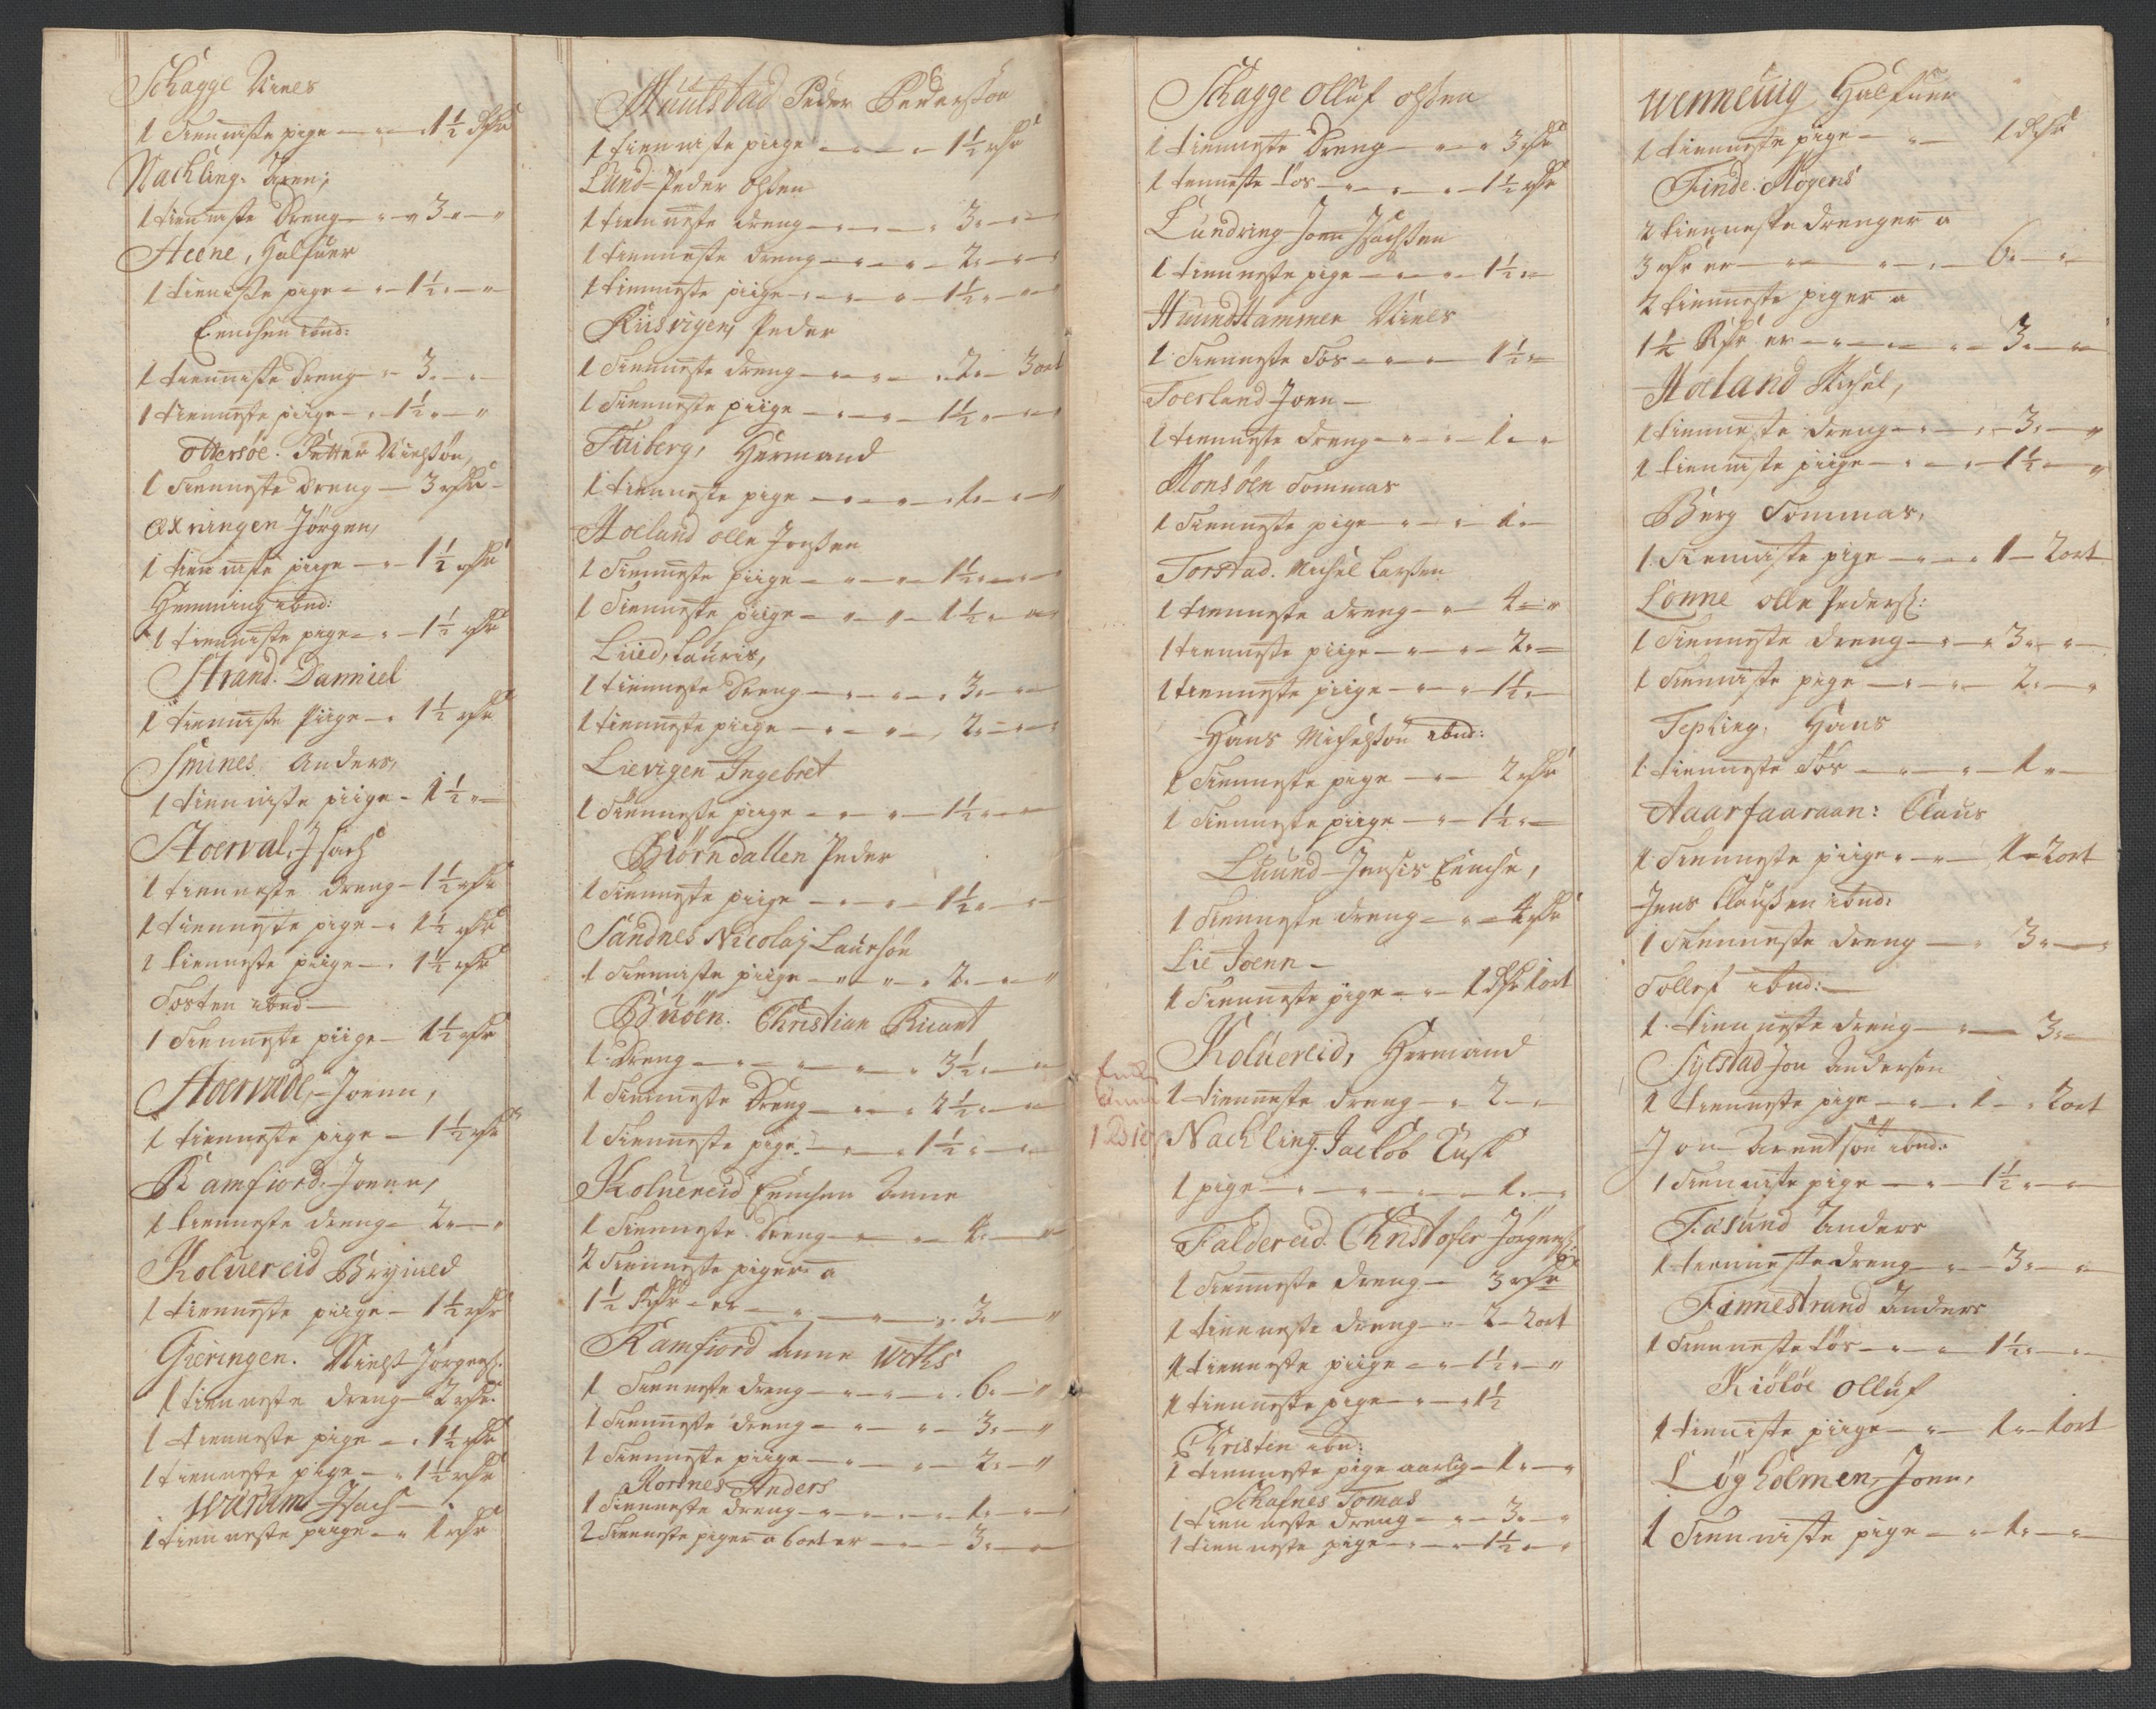 Schagge Niels
1 Tienniste pige — 1½ Rdr
Nachling. Aren;
1 tienniste dreng — 3 —
Heene, Halfuer
1 tienniste pige — 1½ —
Enchen ibnd:
1 tienniste dreng — 3 —
1 tienneste piige — 1½ —
Ottersøe. Petter Nielsøn,
1 Tienneste dreng — 3 rdr
Øxningen Jørgen,
1 tienniste piige — 1½ rdr
Henning ibnd:
1 tienniste pige — 1½ rdr
Strand. Danniel
1 tienniste Piige — 1½ rdr
Smines Anders,
1 tienniste piige — 1½ —
Hoerval, Isach
1 tienneste dreng — 1½ rdr
1 tienneste pige — 1½ rdr
1 tienneste piige — 1½ rdr
Tosten ibnd —
1 Tienneste piige — 1½ rdr
Hoervade, Joenn,
1 tienneste pige — 1½ rdr
Ramfiord, Joenn,
1 tienneste dreng — 2 —
Koluereid Brynied
1 tienneste piige — 1½ rdr
Gieringen. Niels Jørgens:
1 tienneste dreng — 2 rdr
1 tienneste pige — 1½ rdr
1 tienneste piige — 1½ rdr
Waram Isach —
1 tienneste piige — 1 rdr
Huulstad Peder Pedersøn
1 tienniste piige — 1½ rdr
Lund Peder Olsen
1 tienneste dreng — 3 —
1 tienneste dreng — 2 —
1 tienneste piige — 1½ —
Riisvigen, Peder
1 Tienneste dreng — 2 — 3 ort
1 Tienneste piige — 1½ —
Fuiberg, Hermand
1 tienneste pige — 1 —
Hoeland olle Jonsen
1 Tienneste piige — 1½ —
1 Tienneste piige — 1½ —
Lied, Lauris,
1 tienneste dreng — 3 —
1 tienneste piige — 2 —
Lievigen Ingebret
1 Tienneste piige — 1½ —
Biørndallen Peder
1 Tienneste piige — 1½ —
Sandnes Nicolaj Laursøn
1 Tienniste piige — 2 —
Buøen. Christian
1 Dreng — 3½ —
1 Tienneste Dreng — 2½ —
1 Tienneste pige — 1½ —
Koluereid Enchen Anne
1 Tienneste dreng — 4 —
2 Tienneste piger a
1½ Rdr — er — 3 —
Ramfiord Anne
1 Tienneste dreng — 6 —
1 Tienneste dreng — 3 —
1 Tienneste piige — 2 —
Rørnes Anders
1 Tienneste dreng — 1 —
2 Tienneste piger a 6 ort er — 3 —
Schagge olluf olsen
1 tienneste Dreng — 3 rdr
1 tenneste tøs — 1½ rdr
Lundring Joen Isachsen
1 tienneste pige — 1½ —
Huundhammer Niels
1 Tienneste Tøs — 1½ —
Toerland Joen —
1 tienneste dreng — 1 —
Monsøen Tommas
1 Tienneste pige — 1 —
Torstad. Michel Larsen
1 tienneste dreng — 4 —
1 tienneste piige — 2 —
1 tienneste piige — 1½ —
Hans Michelsøn ibnd:
1 Tienneste pige — 2 rdr
1 Tienneste piige — 1½ —
Luund Jensis Enche,
1 Tienneste dreng — 4 rdr
Lie Joenn —
1 Tienneste pige — 1 Rdr 1 ort
Koluereid, Hermand
1 tienneste dreng — 2 —
Nachling. Jackob
1 pige — 1 —
Foldereid. Christofer Jørgens:
1 Tienneste dreng — 3 rdr
1 tienneste dreng — 2 — 2 ort
1 tienneste piige — 1½ —
1 tienneste pige — 1½
Christen ibn:
1 tienneste pige aarlig — 1 —
Schafnes Tomas
1 tienneste dreng — 3 —
1 tienneste pige — 1½ —
Wenneuig Halfuer
1 tienneste pige — 1 Rdr
Finde Mogens
2 tienneste drenger a
3 rdr er — 6 —
2 tienneste piger a
1½ Rdr er — 3 —
Hoeland Michel,
1 tienneste dreng — 3 —
1 tienniste piige — 1½ —
Berg Tommas,
1 Tienniste pige — 1 — 2 ort
Lønne olle Peders:
1 Tienneste dreng — 3 —
1 Tienniste pige — 2 —
Tepling, Hans
1 tienneste Tøs — 1 —
Aaarfaaraan: Claus
1 Tienneste piige — 1 — 2 ort
Jens Claussen ibnd:
1 Tienneste dreng — 3 —
Tollef ibnd: —
1 tienneste dreng — 3 —
Sylstad Jon Andersen
1 tienneste pige — 1 — 2 ort
Jon Arentsøn ibnd:
1 Tienniste pige — 1½ —
Fosund Anders
1 tienneste dreng — 3 —
Finnestrand Anders
1 Tienneste tøs — 1½ —
Kiøløe olluf
1 tienniste piige — 1 — 1 ort
Løgholmen, Joen,
1 Tienniste pige — 1 —